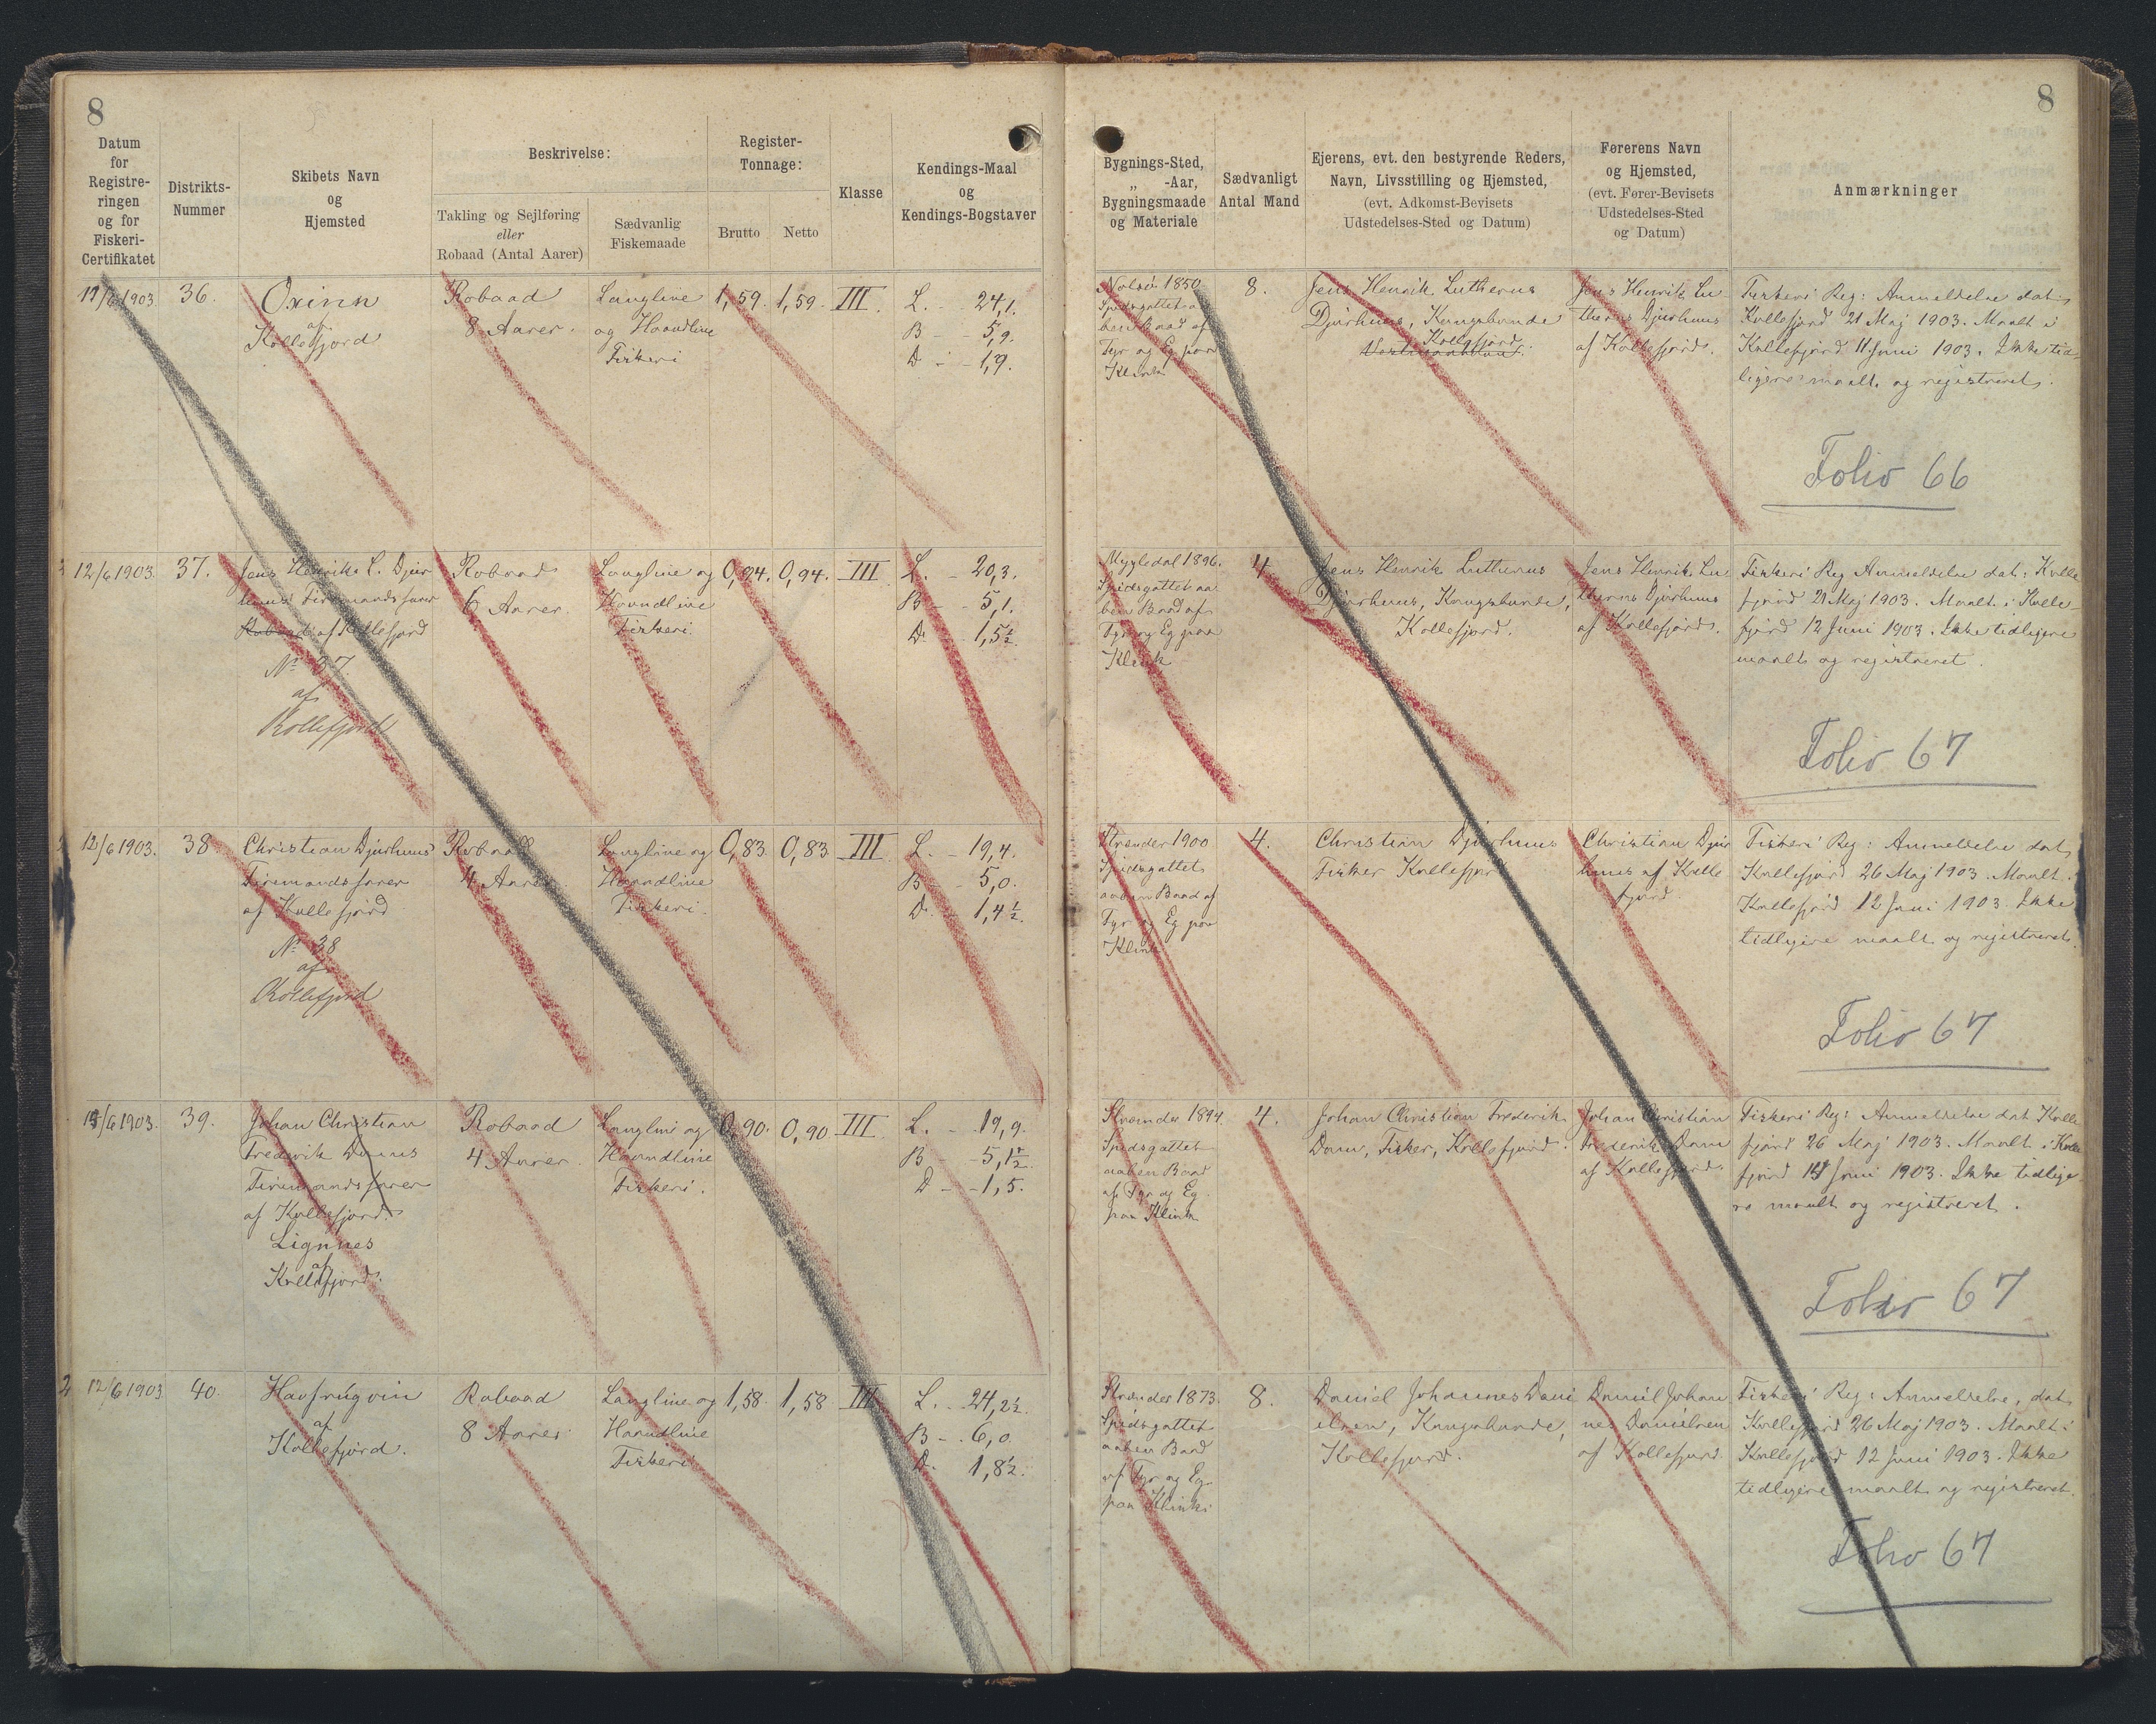 8
8
Datum
for
Registre-
ringen
og for
Fiskeri-
Certifikatet
Distrikts-
Nummer
Skibets Navn
og
Hjemsted
Beskrivelse:
Takling og Sejlføring
eller
Robaad (Antal Aarer)
Sædvanlig
Fiskemaade
Register-
Tonnage:
Brutto
Netto
Klasse
Kendings-Maal
og
Kendings-Bogstaver
Bygnings-Sted,
„ -Aar,
Bygningsmaade
og Materiale
Sædvanligt
Antal Mand
Ejerens, evt. den bestyrende Reders,
Navn, Livsstilling og Hjemsted,
(evt. Adkomst-Bevisets
Udstedelses-Sted og Datum)
Førerens Navn
og Hjemsted,
(evt. Fører-Bevisets
Udstedelses-Sted
og Datum)
Anmærkninger
11/6 1903
36.
Oxinn
af
Kollefjord
Robaad
8 Aarer.
Langline
og Haandline
Fiskeri
1,59.
1,59.
III.
L. 24,1.
B - - 5,9.
D - - 1,9.
Nolsø 1850
Spidsgattet aa
ben Baad af
Fyr og Eg paa
Klink
8.
Jens Henrik Lutherus
Djurhuus, Kongsbonde
Kollefjord.
Jens Henrik Lu
therus Djurhuus
af Kollefjord.
Fiskeri Reg: Anmeldelse dat.
Kollefjord 21 Maj 1903. Maalt i
Kollefjord 11 Juni 1903. Ikke tid-
ligere maalt og registreret.
Folio 66
12/6 1903.
37.
Jens Henrik L. Djur
huus' Firemandsfarer
Robaad af Kollefjord
No 37
af
Kollefjord
Robaad
6 Aarer.
Langline og
Haandline
Fiskeri.
0,94.
0,94.
III
L. - 20,3.
B - - 5,1.
D. - 1,5½
Myggledal 1896.
Spidsgattet aa
ben Baad af
Fyr og Eg paa
Klink
4
Jens Henrik Lutherus
Djurhuus, Kongsbonde,
Kollefjord.
Jens Henrik Lu
therus Djurhuus
af Kollefjord.
Fiskeri Reg Anmeldelse dat: Kolle
fjord 21 Maj 1903. Maalt i Kolle-
fjord 12 Juni 1903. Ikke tidligere
maalt og registreret.
Folio 67
12/6 1903.
38
Christian Djurhuus
Firemandsfarer
af Kollefjord
No 38
af
Kollefjord
Robaad
4 Aarer
Langline og
Haandline
Fiskeri.
0,83.
0,83
III
L. - 19,4.
B - 5,0.
D. - 1,4½.
Strænder 1900
Spidsgattet
aaben Baad af
Fyr og Eg paa
Klink
4.
Christian Djurhuus
Fisker Kollefjord
Christian Djur
huus af Kolle
fjord.
Fiskeri Reg: Anmeldelse dat,
Kollefjord 26 Maj 1903. Maalt.
Kollefjord 12 Juni 1903. Ikke
tidligere maalt og registreret.
Folio 67
/6 1903.
39.
Johan Christian
Frederik Dams
Firemandsfarer
af Kollefjord.
Lignnes
af
Kollefjord.
Robaad
4 Aarer.
Langline og
Haandline
Fiskeri.
0,90.
0,90
III
L. - 19,9.
B - - 5,1½
D - - 1,5.
Strænder 1894
Spidsgattet
aaben Baad
af Fyr og Eg
paa Klink
4.
Johan Christian Frederik
Dam, Fisker, Kollefjord.
Johan Christian
Frederik Dam
af Kollefjord.
Fiskeri Reg: Anmeldelse dat Kolle
fjord 26 Maj 1903. Maalt i Kolle
fjord Juni 1903. Ikke tidlige
re maalt og registreret.
Folio 67
12/6 1903
40.
Havfrúgvin
af
Kollefjord.
Robaad
8 Aarer.
Langline og
Haandline
Fiskeri
1,58.
1,58
III
L. - 24,2½.
B - . 6,0.
D. 1,8½.
Strænder 1873.
Spidsgattet
aaben Baad
af Fyr og Eg
paa Klink.
8.
Daniel Johannes Dani
elsen, Kongsbonde,
Kollefjord.
Daniel Johan
nes Danielsen
af Kollefjord.
Fiskeri Reg: Anmeldelse, dat.
Kollefjord 26 Maj 1903. Maalt i
Kollefjord 12 Juni 1903. Ikke
tidligere maalt og registreret.
Folio 67